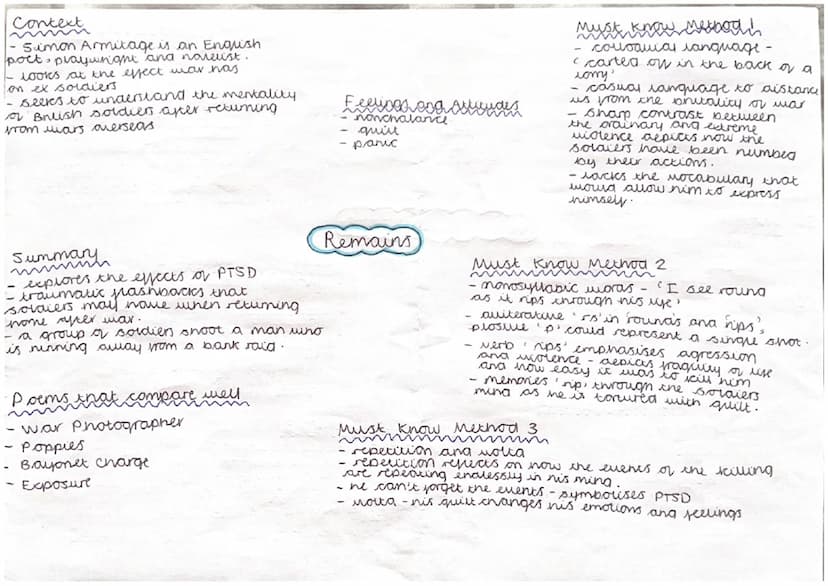 Context
- Simon Armitage is an English
poet, playwright and novelist.
- looks at the effect war has
on ex soldiers
- seeks to understand the mentality
of British soldiers after returning
from wars overseas
Feelings and Attitudes
- nonchalance
- guilt
- panic
Must Know Method 1
- colloquial language -
'carted off in the back of a
lorry'
- casual language to distance
us from the brutality of war
- sharp contrast between
the ordinary and extreme
violence depicts how the
soldiers have been numbed
by their actions.
- lacks the vocabulary that
would allow him to express
himself.
Remains
Summary
- explores the effects of PTSD
- traumatic flashbacks that
soldiers may have when returning
home after war.
- a group of soldiers shoot a man who
is running away from a bank raid.
Must Know Method 2
- monosyllabic words - 'I see round
as it rips through his life'
- alliterative 'r's in 'rounds and rips',
plosive 'p' could represent a single shot.
- verb 'rips' emphasises agression
and violence - depicts fragility of life
and how easy it was to kill him
- memories 'rip' through the soldiers
mind as he is tortured with guilt.
Poems that compare well
- War Photographer
- Poppies
- Bayonet Charge
- Exposure
Must Know Method 3
- repetition and volta
- repetition reflects on how the events of the killing
are repeating endlessly in his mind.
- he can't forget the events - symbolises PTSD
- volta - his guilt changes his emotions and feelings